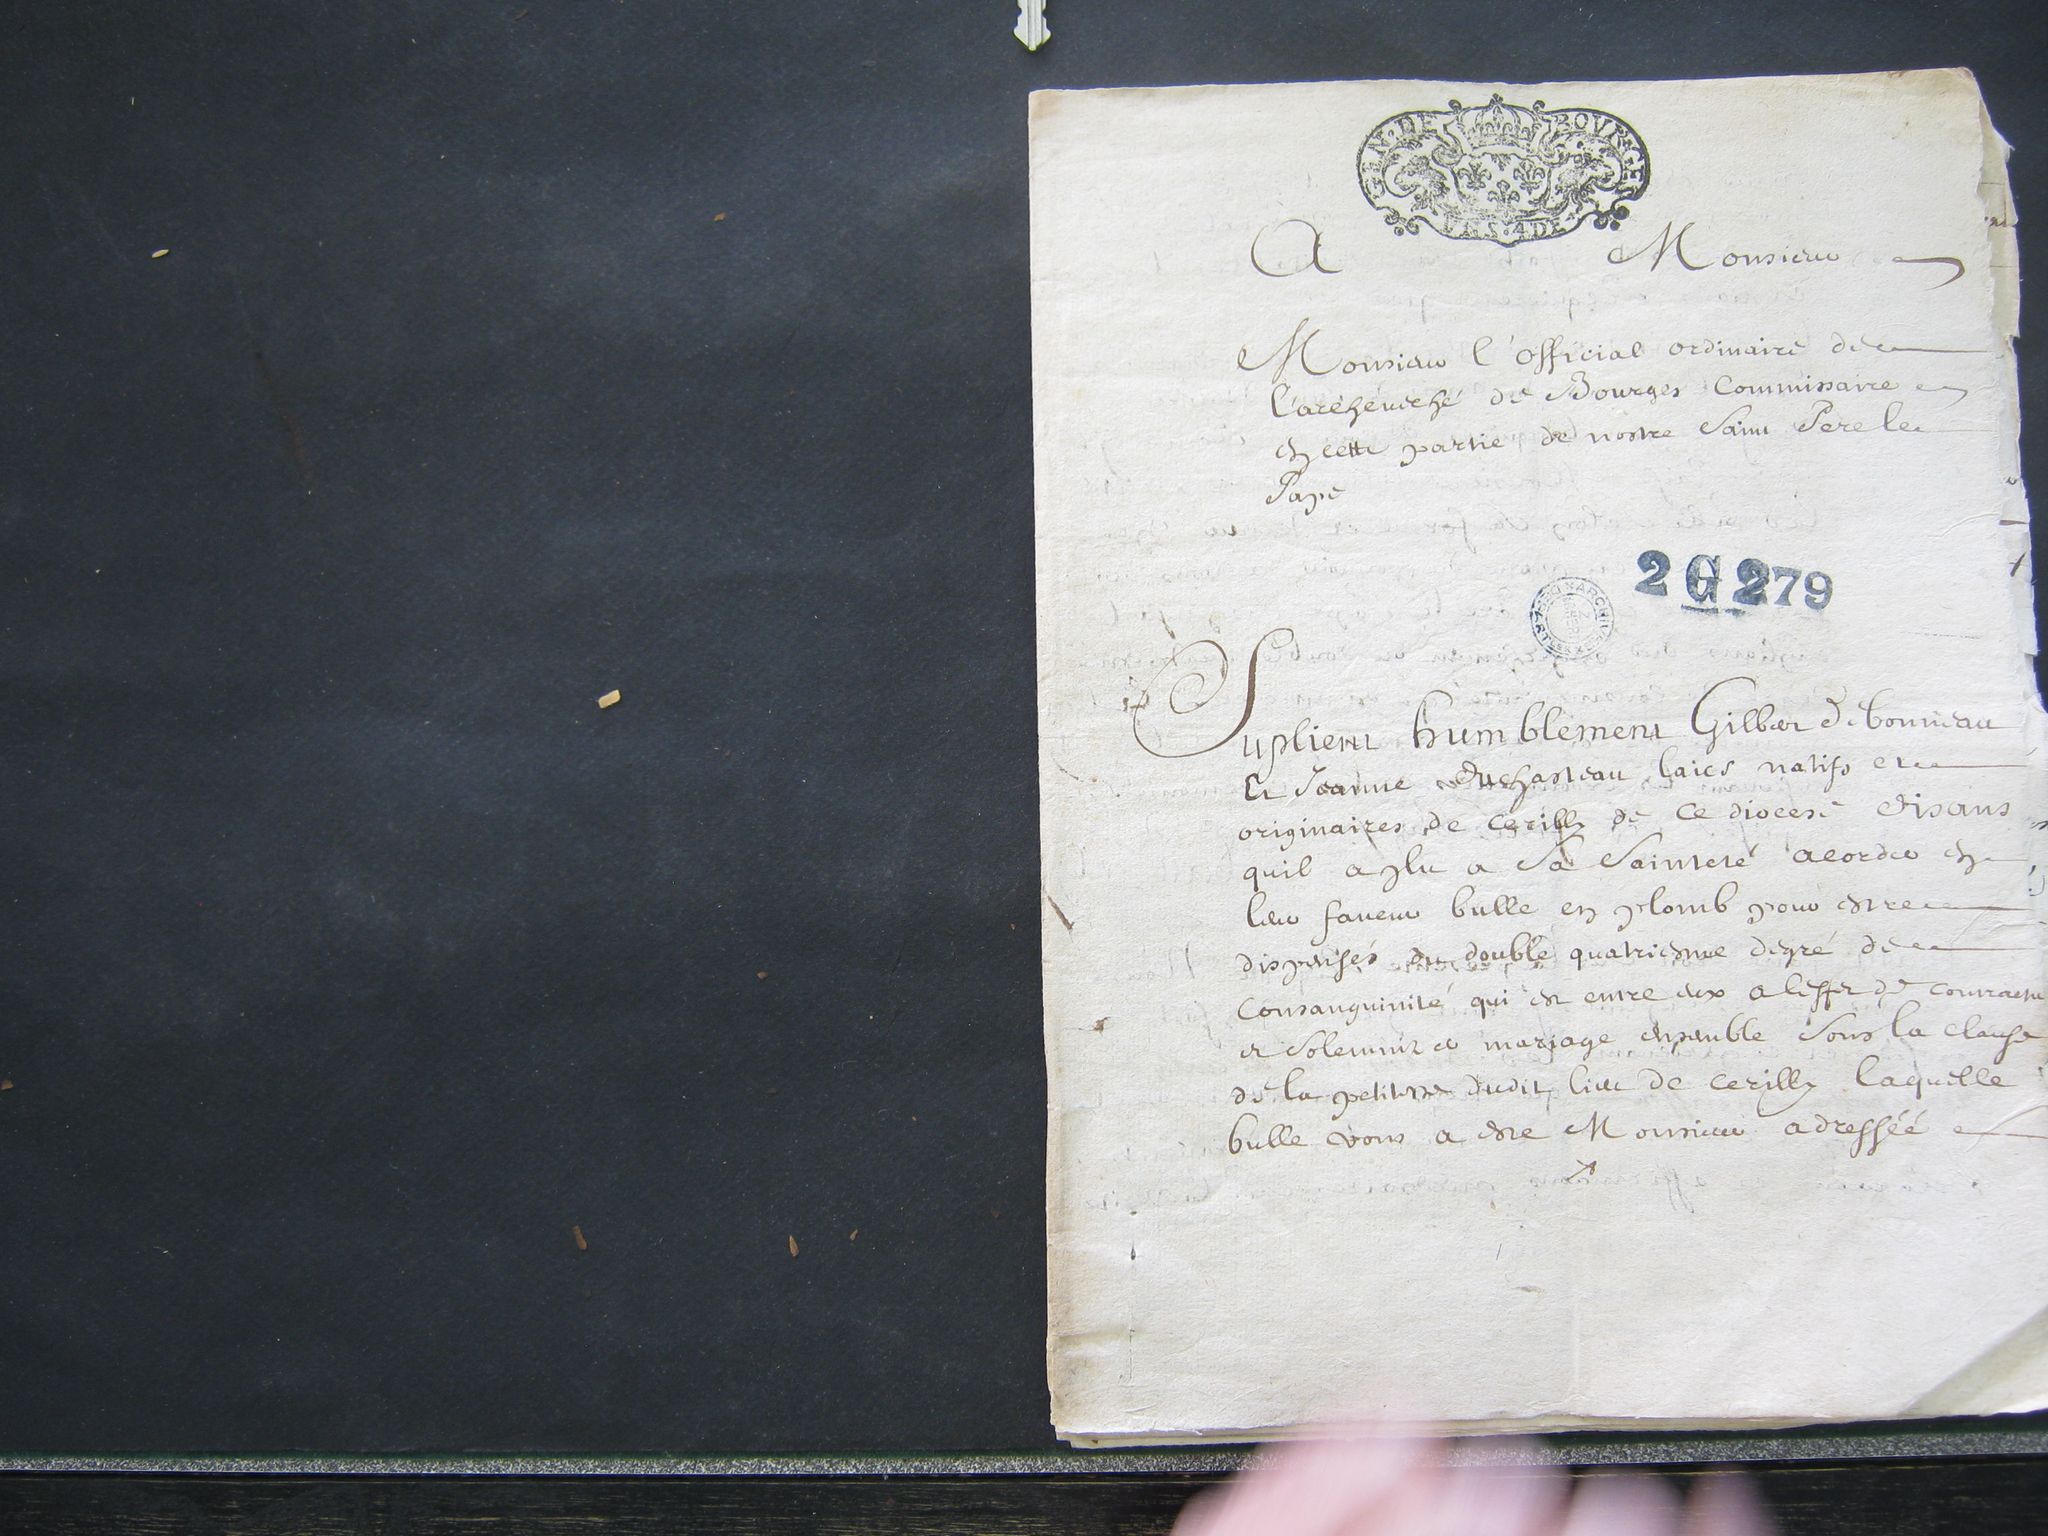 GEN. DE BOURGES
UN S. 4 DE
A Monsieur
Monsieur l'official ordinaire de
l'archeveché de Bourges Commissaire
en cette partie de nostre Saint Pere le
Pape
2 G 279
Suplient humblement Gilbert Debonneau
Et Jeanne Duchasteau laics natifs et
originaires de cerilly de ce diocese disans
quil a plu a Sa Sainteté acorder en
leur faveur bulle en plomb pour estre
dispensés du double quatriesme degré de
Consanguinité qui est entre eux a leffet de contracter
et solemniser mariage ensemble sous la clause
de la petitesse dudit lieu de cerilly laquelle
bulle vous a esté Monsieur adresséé